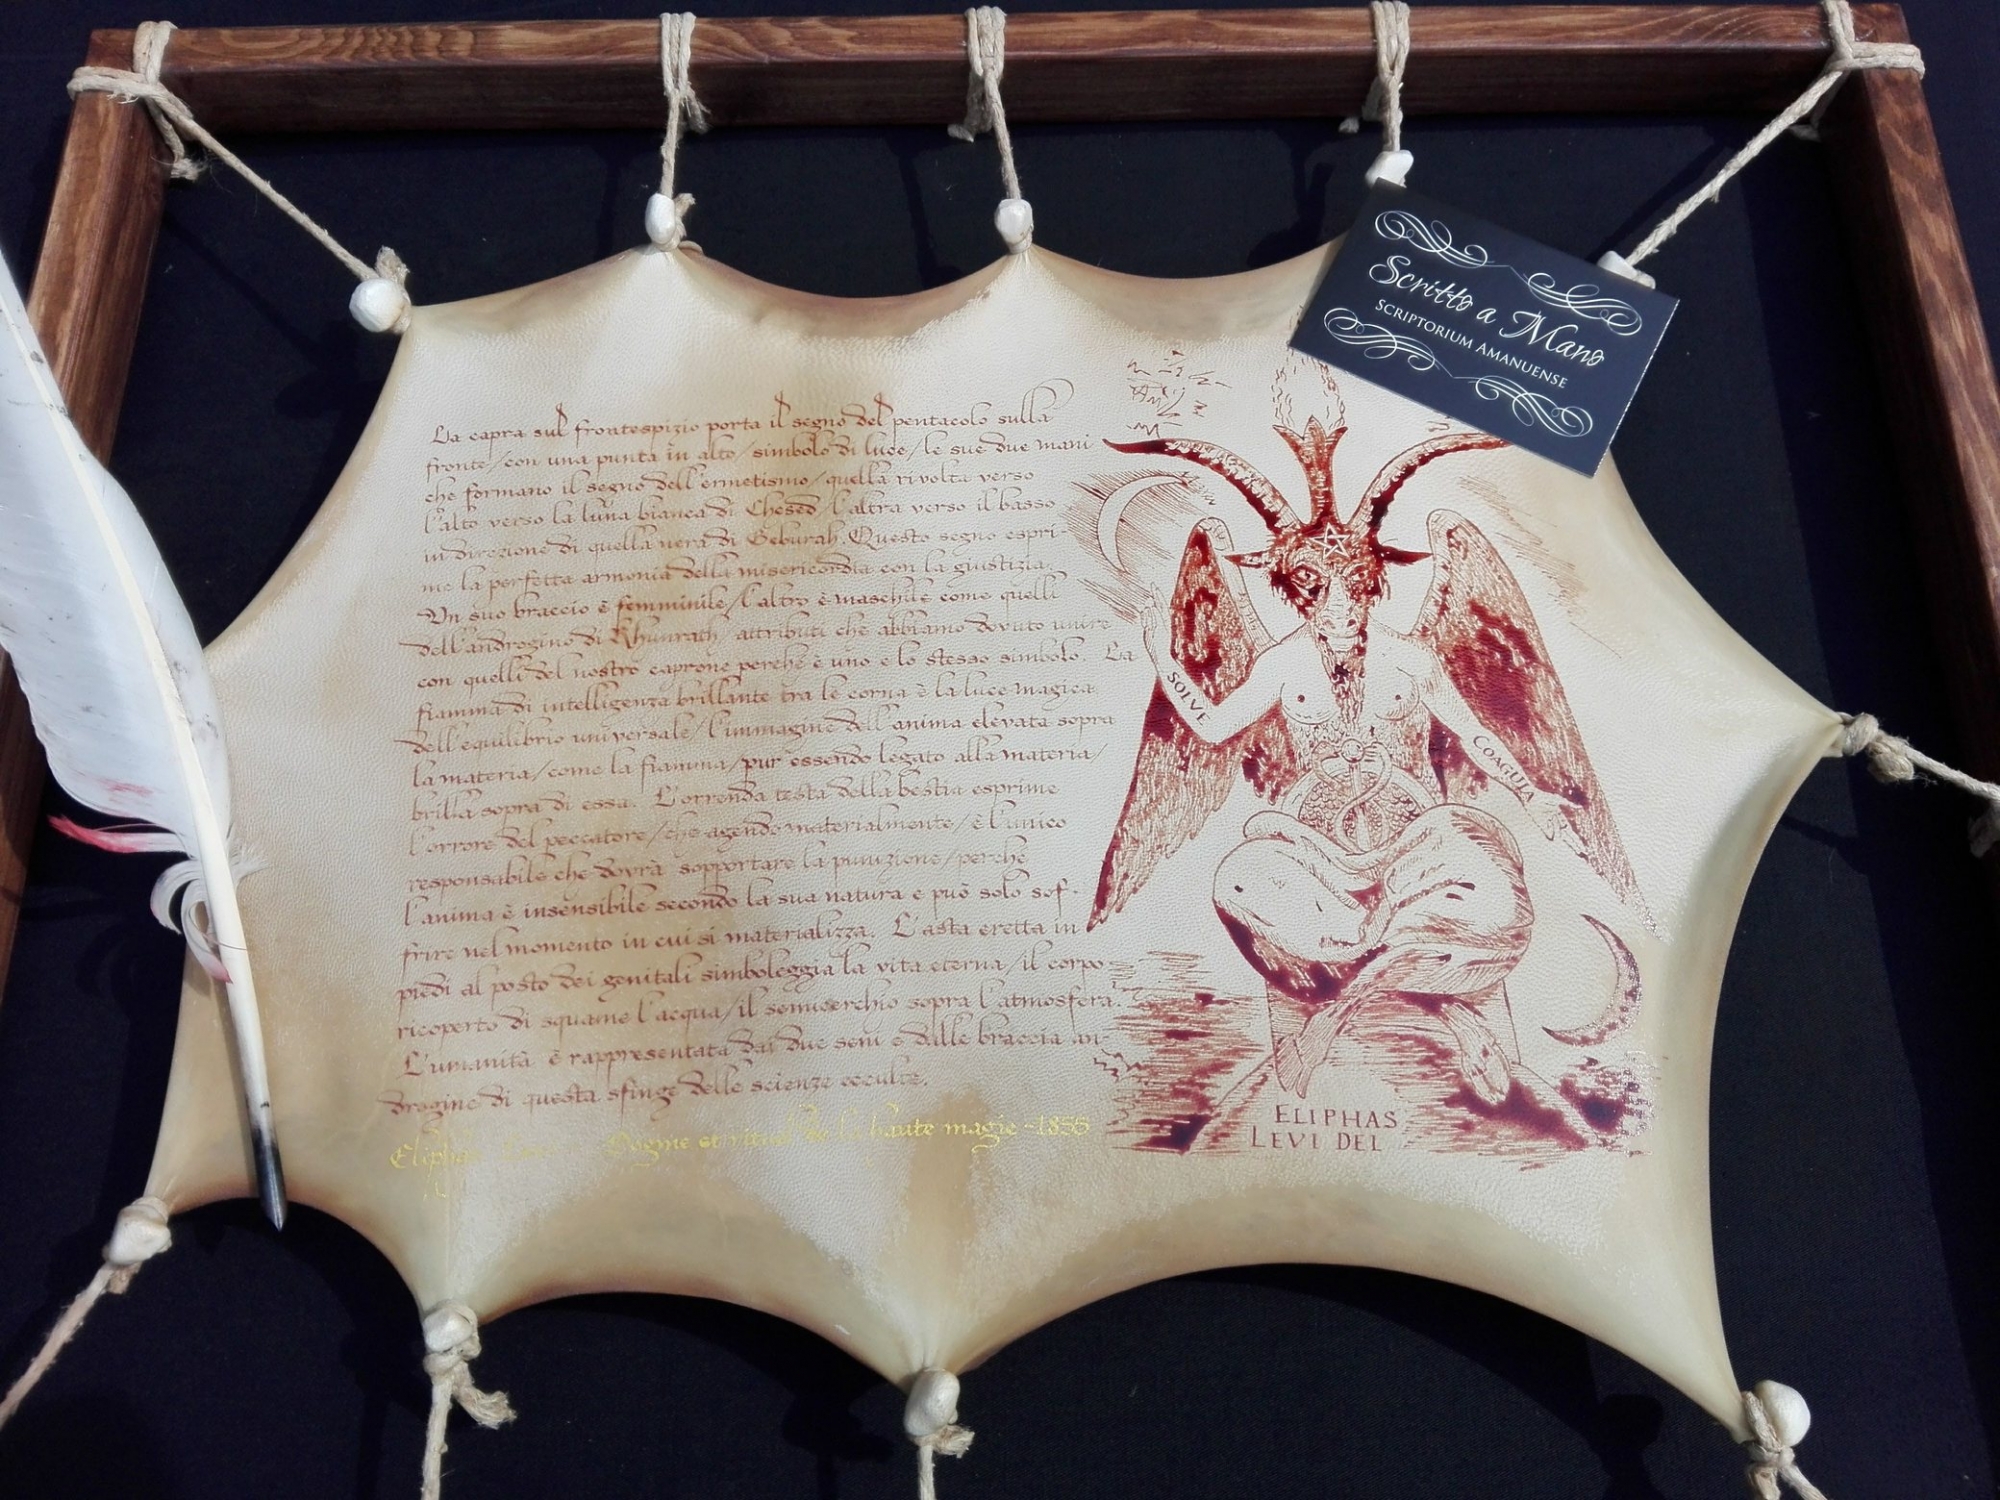 La capra sul frontespizio porta il segno del pentacolo sulla
fronte/con una punta in alto/simbolo di luce/le sue due mani
che formano il segno dell'ermetismo/quella rivolta verso
l'alto verso la luna bianca di Chesed/l'altra verso il basso
in direzione di quella nera di Geburah. Questo segno espri-
me la perfetta armonia della misericordia con la giustizia.
Un suo braccio è femminile/l'altro è maschile come quelli
dell'androgino di Khunrath attributi che abbiamo dovuto unire
con quelli del nostro caprone perché è uno e lo stesso simbolo. La
fiamma di intelligenza brillante tra le corna è la luce magica
dell'equilibrio universale/l'immagine dell'anima elevata sopra
la materia/come la fiamma/pur essendo legato alla materia/
brilla sopra di essa. L'orrenda testa della bestia esprime
l'orrore del peccatore/che agendo materialmente/è l'unico
responsabile che dovrà sopportare la punizione/perché
l'anima è insensibile secondo la sua natura e può solo sof-
frire nel momento in cui si materializza. L'asta eretta in
piedi al posto dei genitali simboleggia la vita eterna/il corpo
ricoperto di squame l'acqua/il semicerchio sopra l'atmosfera.
L'umanità è rappresentata dai due seni e dalle braccia an-
drogine di questa sfinge delle scienze occulte.
Eliphas Dogme et rituel de la haute magie -1855
SOLVE
COAGULA
ELIPHAS
LEVI DEL
Scritto a Mano
SCRIPTORIUM AMANUENSE